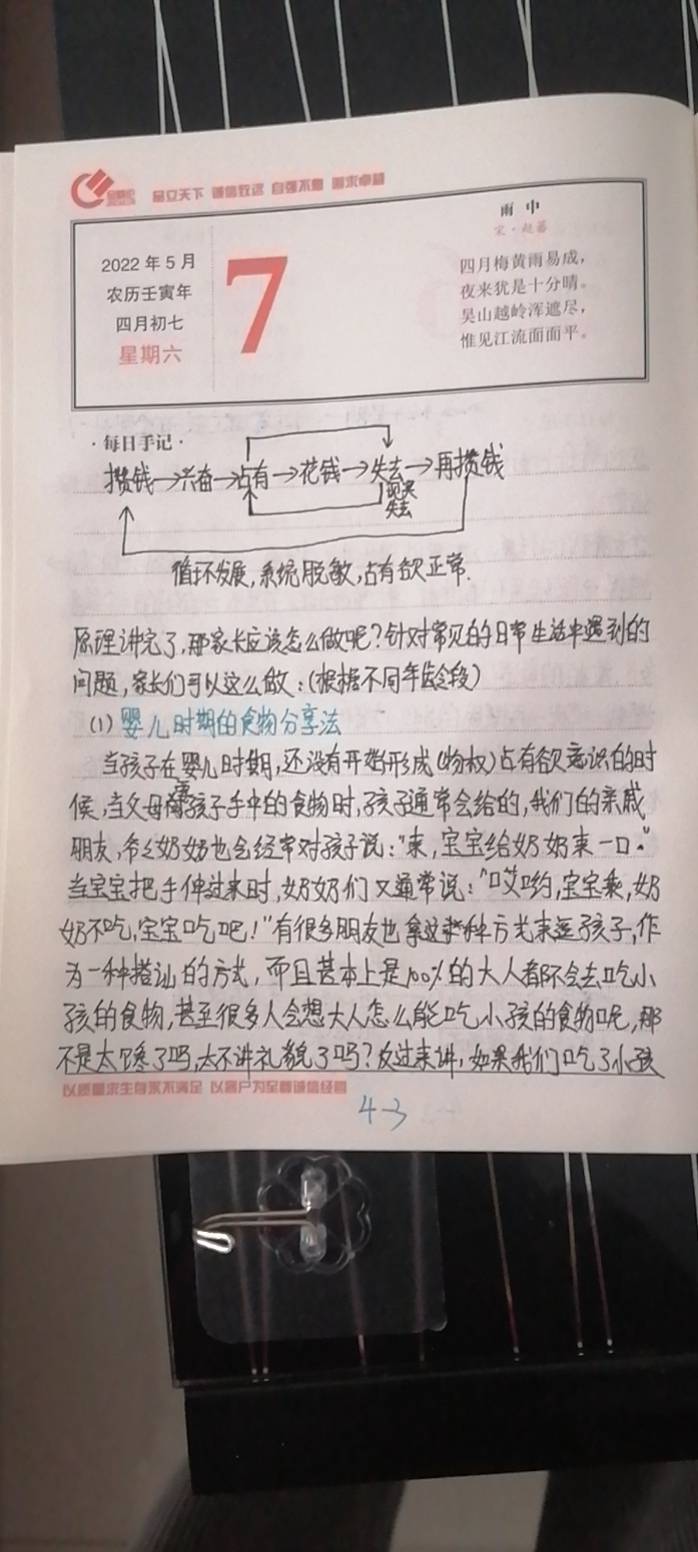 品立天下 诚信致远 自强不息 追求卓越
雨中
宋·赵蕃
2022年5月
农历壬寅年
四月初七
星期六
7
四月梅黄雨易成，
夜来犹是十分晴。
吴山越岭浑遮尽，
惟见江流面面平。
·每日手记·
攒钱→兴奋→占有→花钱→失去→再攒钱
失去
循环发展,系统脱敏,占有欲正常.
原理讲完了,那家长应该怎么做呢?针对常见的日常生活中遇到的
问题,家长们可以这么做:(根据不同年龄段)
(1)婴儿时期的食物分享法
当孩子在婴儿时期,还没有开始形成(物权)占有欲意识的时
候,当父母拿孩子手中的食物时,孩子通常会给的,我们的亲戚
朋友,爷爷奶奶也会经常对孩子说:"来,宝宝给奶奶来一口。"
当宝宝把手伸过来时,奶奶们又通常说:"哎哟,宝宝乖,奶
奶不吃,宝宝吃吧!"有很多朋友也拿这种方式来逗孩子,作
为一种搭讪的方式,而且基本上是100%的大人都不会去吃小
孩的食物,甚至很多人会想大人怎么能吃小孩的食物呢,那
不是太馋了吗,太不讲礼貌了吗?反过来讲,如果我们吃了小孩
以质量求生存永不满足 以客户为至尊诚信经营
4-3